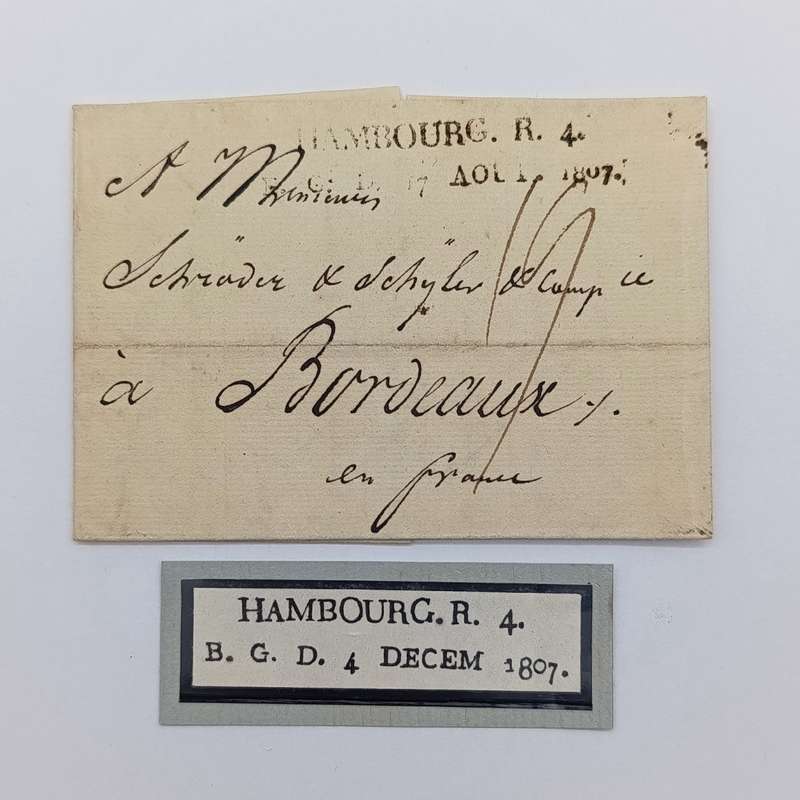 HAMBOURG. R. 4.
B. G. D. 17 AOUT. 1807.
A Messieurs
Schröder & Schÿler & Comp ie
à Bordeaux /.
en france
HAMBOURG. R. 4.
B. G. D. 4 DECEM 1807.